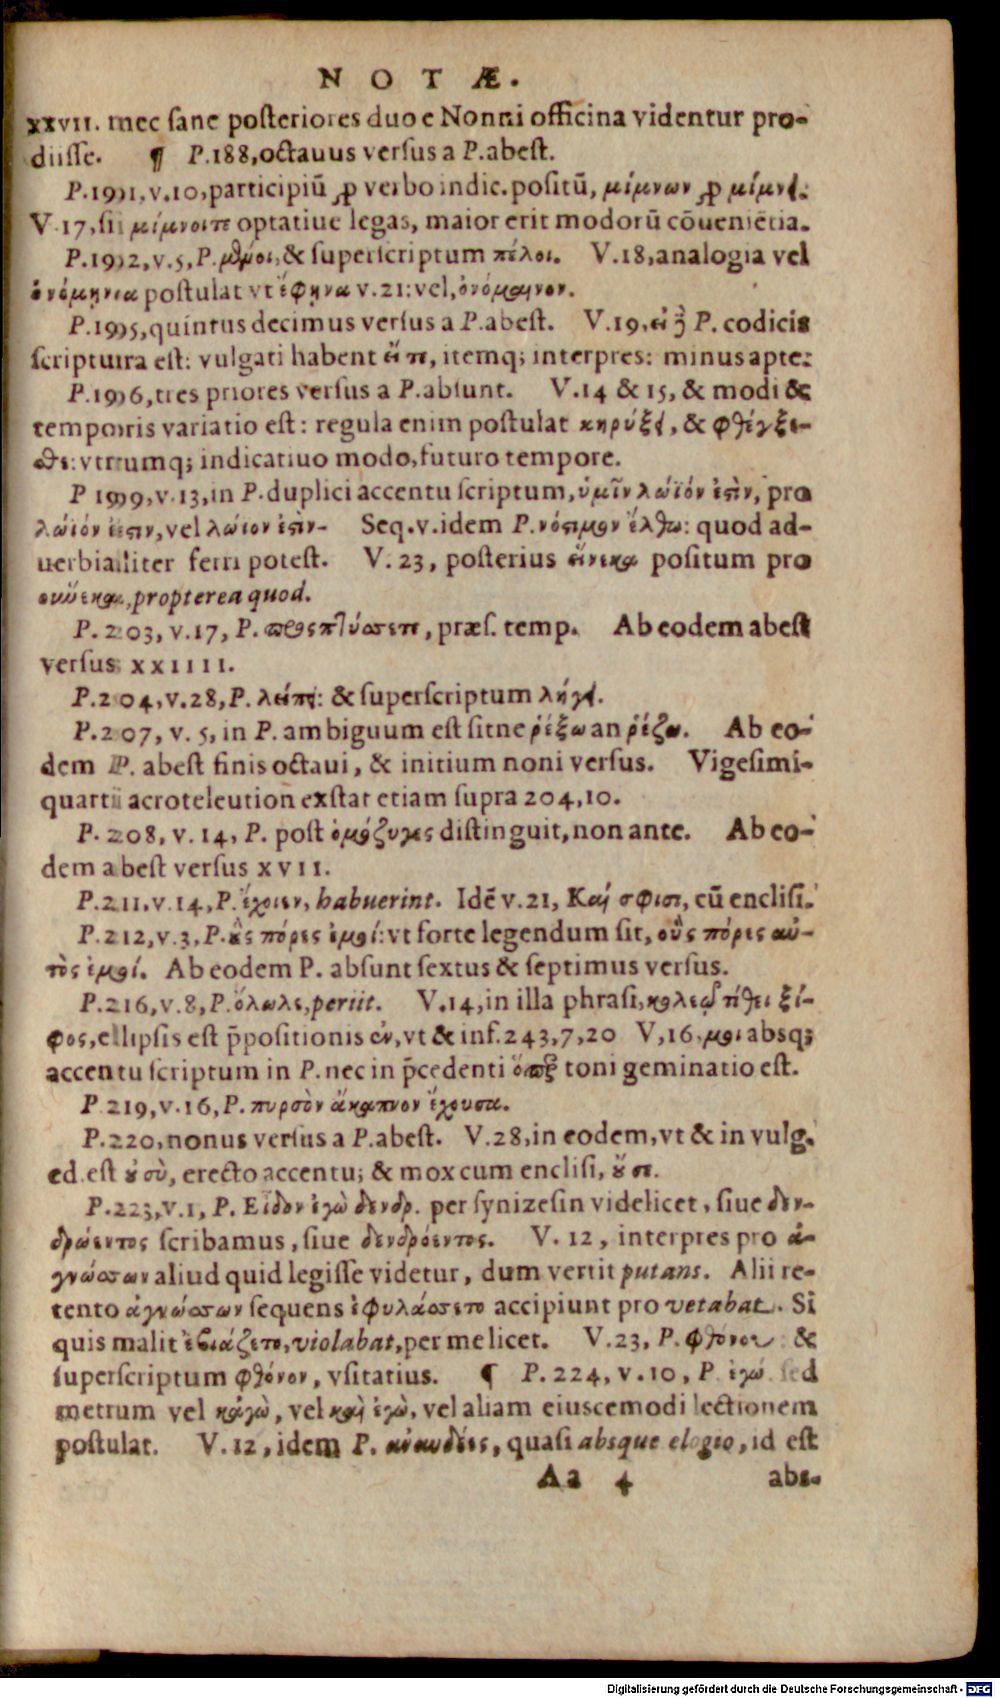 NOTÆ.
xxvii. nec sane posteriores duo e Nonni officina videntur pro-
diisse. ¶ P.188, octauus versus a P. abest.
P.191, v.10, participiū ꝓ verbo indic. positū, μίμνων ꝓ μίμνει.
V.17, si μίμνοιτε optatiue legas, maior erit modorū cōueniētia.
P.192, v.5, P. μθμοι, & superscriptum πέλοι. V.18, analogia vel
ὀνόμηνια postulat vt ἔφηνα v.21: vel, ὀνόμαινον.
P.195, quintus decimus versus a P. abest. V.19, P. codicis
scriptura est: vulgati habent ἔτι, itemq; interpres: minus apte.
P.196, tres priores versus a P. absunt. V.14 & 15, & modi &
temporis variatio est: regula enim postulat κηρύξει, & φθέγξε-
σθε: vtrumq; indicatiuo modo, futuro tempore.
P 199, v.13, in P. duplici accentu scriptum, ὑμῖν λώϊόν ἐστὶν, pro
λώϊόν ἐστιν, vel λώϊον ἐστὶν. Seq.v. idem P. νόστιμον ἔλθω: quod ad-
uerbialiter ferri potest. V. 23, posterius εἵνεκα positum pro
οὑνεκα, propterea quod.
P. 203, v.17, P. προςπτύσσετε, præs. temp. Ab eodem abest
versus xxiiii.
P.204, v.28, P. λείπει: & superscriptum λήγει.
P.207, v. 5, in P. ambiguum est sitne ῥέξω an ῥέζω. Ab eo-
dem P. abest finis octaui, & initium noni versus. Vigesimi-
quarti acroteleution exstat etiam supra 204,10.
P. 208, v. 14, P. post ὁμόζυγες distinguit, non ante. Ab eo-
dem abest versus xvii.
P.211. v.14, P. ἔχοιεν, habuerint. Idē v.21, Καί σφισι, cū enclisi.
P.212, v.3, P. οὓς πόρες ἐμοί: vt forte legendum sit, οὓς πόρες αὐ-
τὸς ἐμοί. Ab eodem P. absunt sextus & septimus versus.
P.216, v.8, P. ὄλωλε, periit. V.14, in illa phrasi, κολεῷ τίθει ξί-
φος, ellipsis est p̄positionis ἐν, vt & inf. 243,7,20 V,16, μοι absq;
accentu scriptum in P. nec in p̄cedenti toni geminatio est.
P.219, v.16, P. πυρσὸν ἄκαπνον ἔχουσα.
P.220, nonus versus a P. abest. V.28, in eodem, vt & in vulg.
ed. est ȣ σὺ, erecto accentu; & mox cum enclisi, ȣ̓ σε.
P.223, v.1, P. Εἶδον ἐγὼ δενδρ. per synizesin videlicet, siue δεν-
δρώεντος scribamus, siue δενδρόεντος. V. 12, interpres pro ἀ-
γνώσσων aliud quid legisse videtur, dum vertit putans. Alii re-
tento ἀγνώσσων sequens ἐφυλάσσετο accipiunt pro vetabat. Si
quis malit ἐβιάζετο, violabat, per me licet. V.23, P. φθόνου: &
superscriptum φθόνον, vsitatius. ¶ P.224, v.10, P. ἐγώ. sed
metrum vel κἀγὼ, vel καὶ ἐγὼ, vel aliam eiuscemodi lectionem
postulat. V.12, idem P. ἀναυδέες, quasi absque elogio, id est
Aa 4 abs-
Digitalisierung gefördert durch die Deutsche Forschungsgemeinschaft - DFG